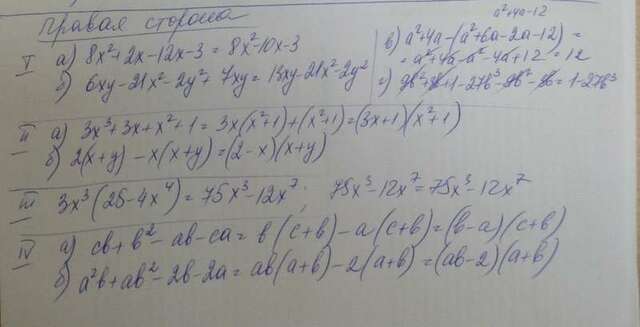 правая сторона
I а) 8x²+2x-12x-3=8x²-10x-3
б) 6xy-21x²-2y²+7xy=13xy-21x²-2y²
a²+4a-12
в) a²+4a-(a²+6a-2a-12)=
=a²+4a-a²-4a+12=12
г) 9b²+3b+1-27b³-9b²-3b=1-27b³
II а) 3x³+3x+x²+1=3x(x²+1)+(x²+1)=(3x+1)(x²+1)
б) 2(x+y)-x(x+y)=(2-x)(x+y)
III 3x³(25-4x⁴)=75x³-12x⁷; 75x³-12x⁷=75x³-12x⁷
IV а) cb+b²-ab-ca=b(c+b)-a(c+b)=(b-a)(c+b)
б) a²b+ab²-2b-2a=ab(a+b)-2(a+b)=(ab-2)(a+b)